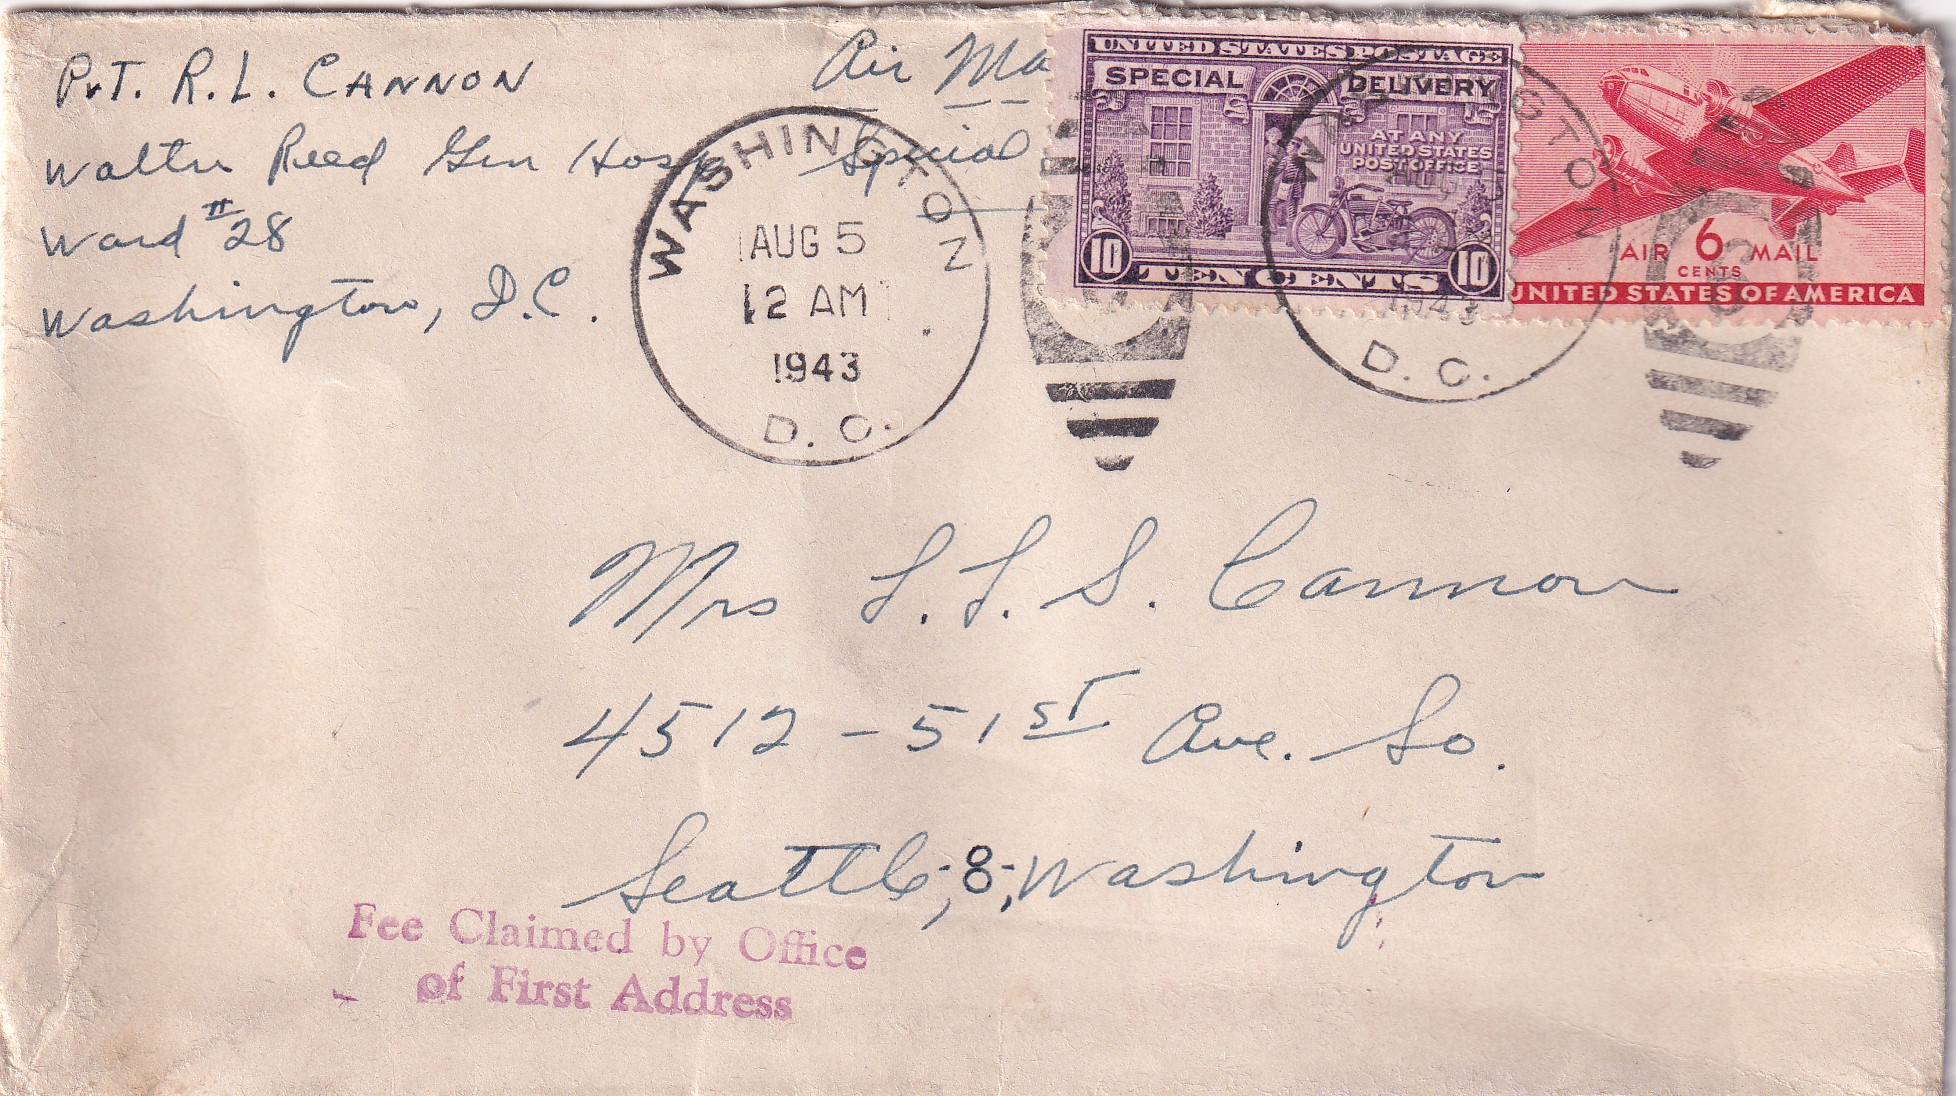 Pvt. R. L. CANNON
Walter Reed Gen Hosp
Ward #28
Washington, D.C.
Air Ma
Special
WASHINGTON
AUG 5
12 AM
1943
D. C.
UNITED STATES POSTAGE
SPECIAL DELIVERY
AT ANY
UNITED STATES
POST OFFICE
10 TEN CENTS 10
AIR 6 MAIL
CENTS
UNITED STATES OF AMERICA
1943
D. C.
Mrs L. L. S. Cannon
4512 - 51ST Ave. So.
Seattle, -8-, Washington
Fee Claimed by Office
of First Address